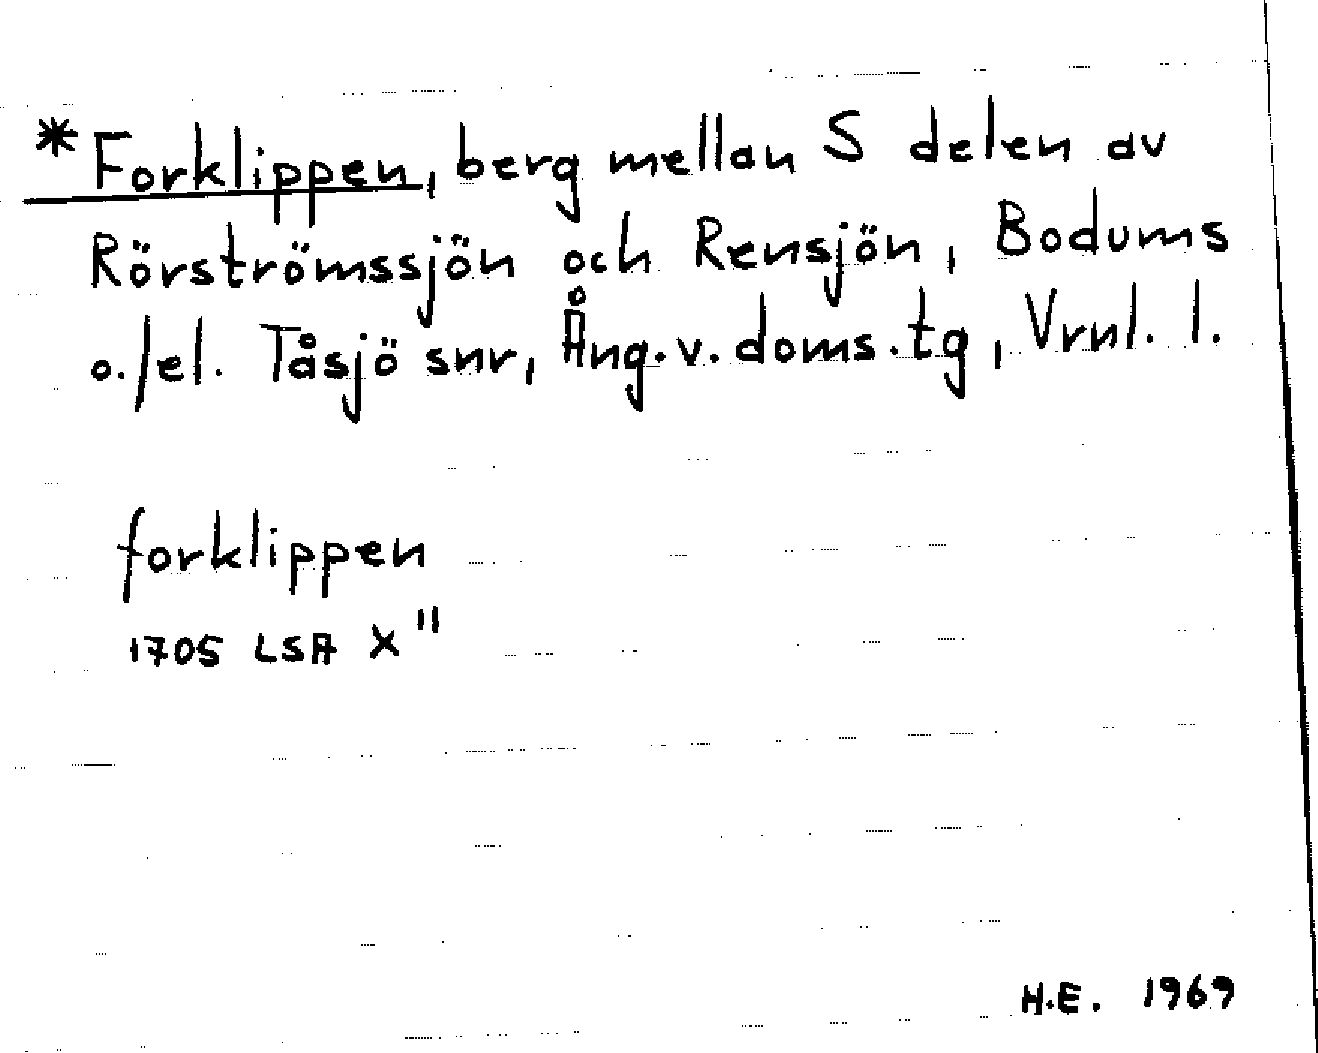 *Forklippen, berg mellan S delen av
Rörströmssjön och Rensjön, Bodums
o./el. Tåsjö snr, Ång.v.doms.tg, Vrnl. l.
forklippen
1705 LSA X"
H.E. 1969